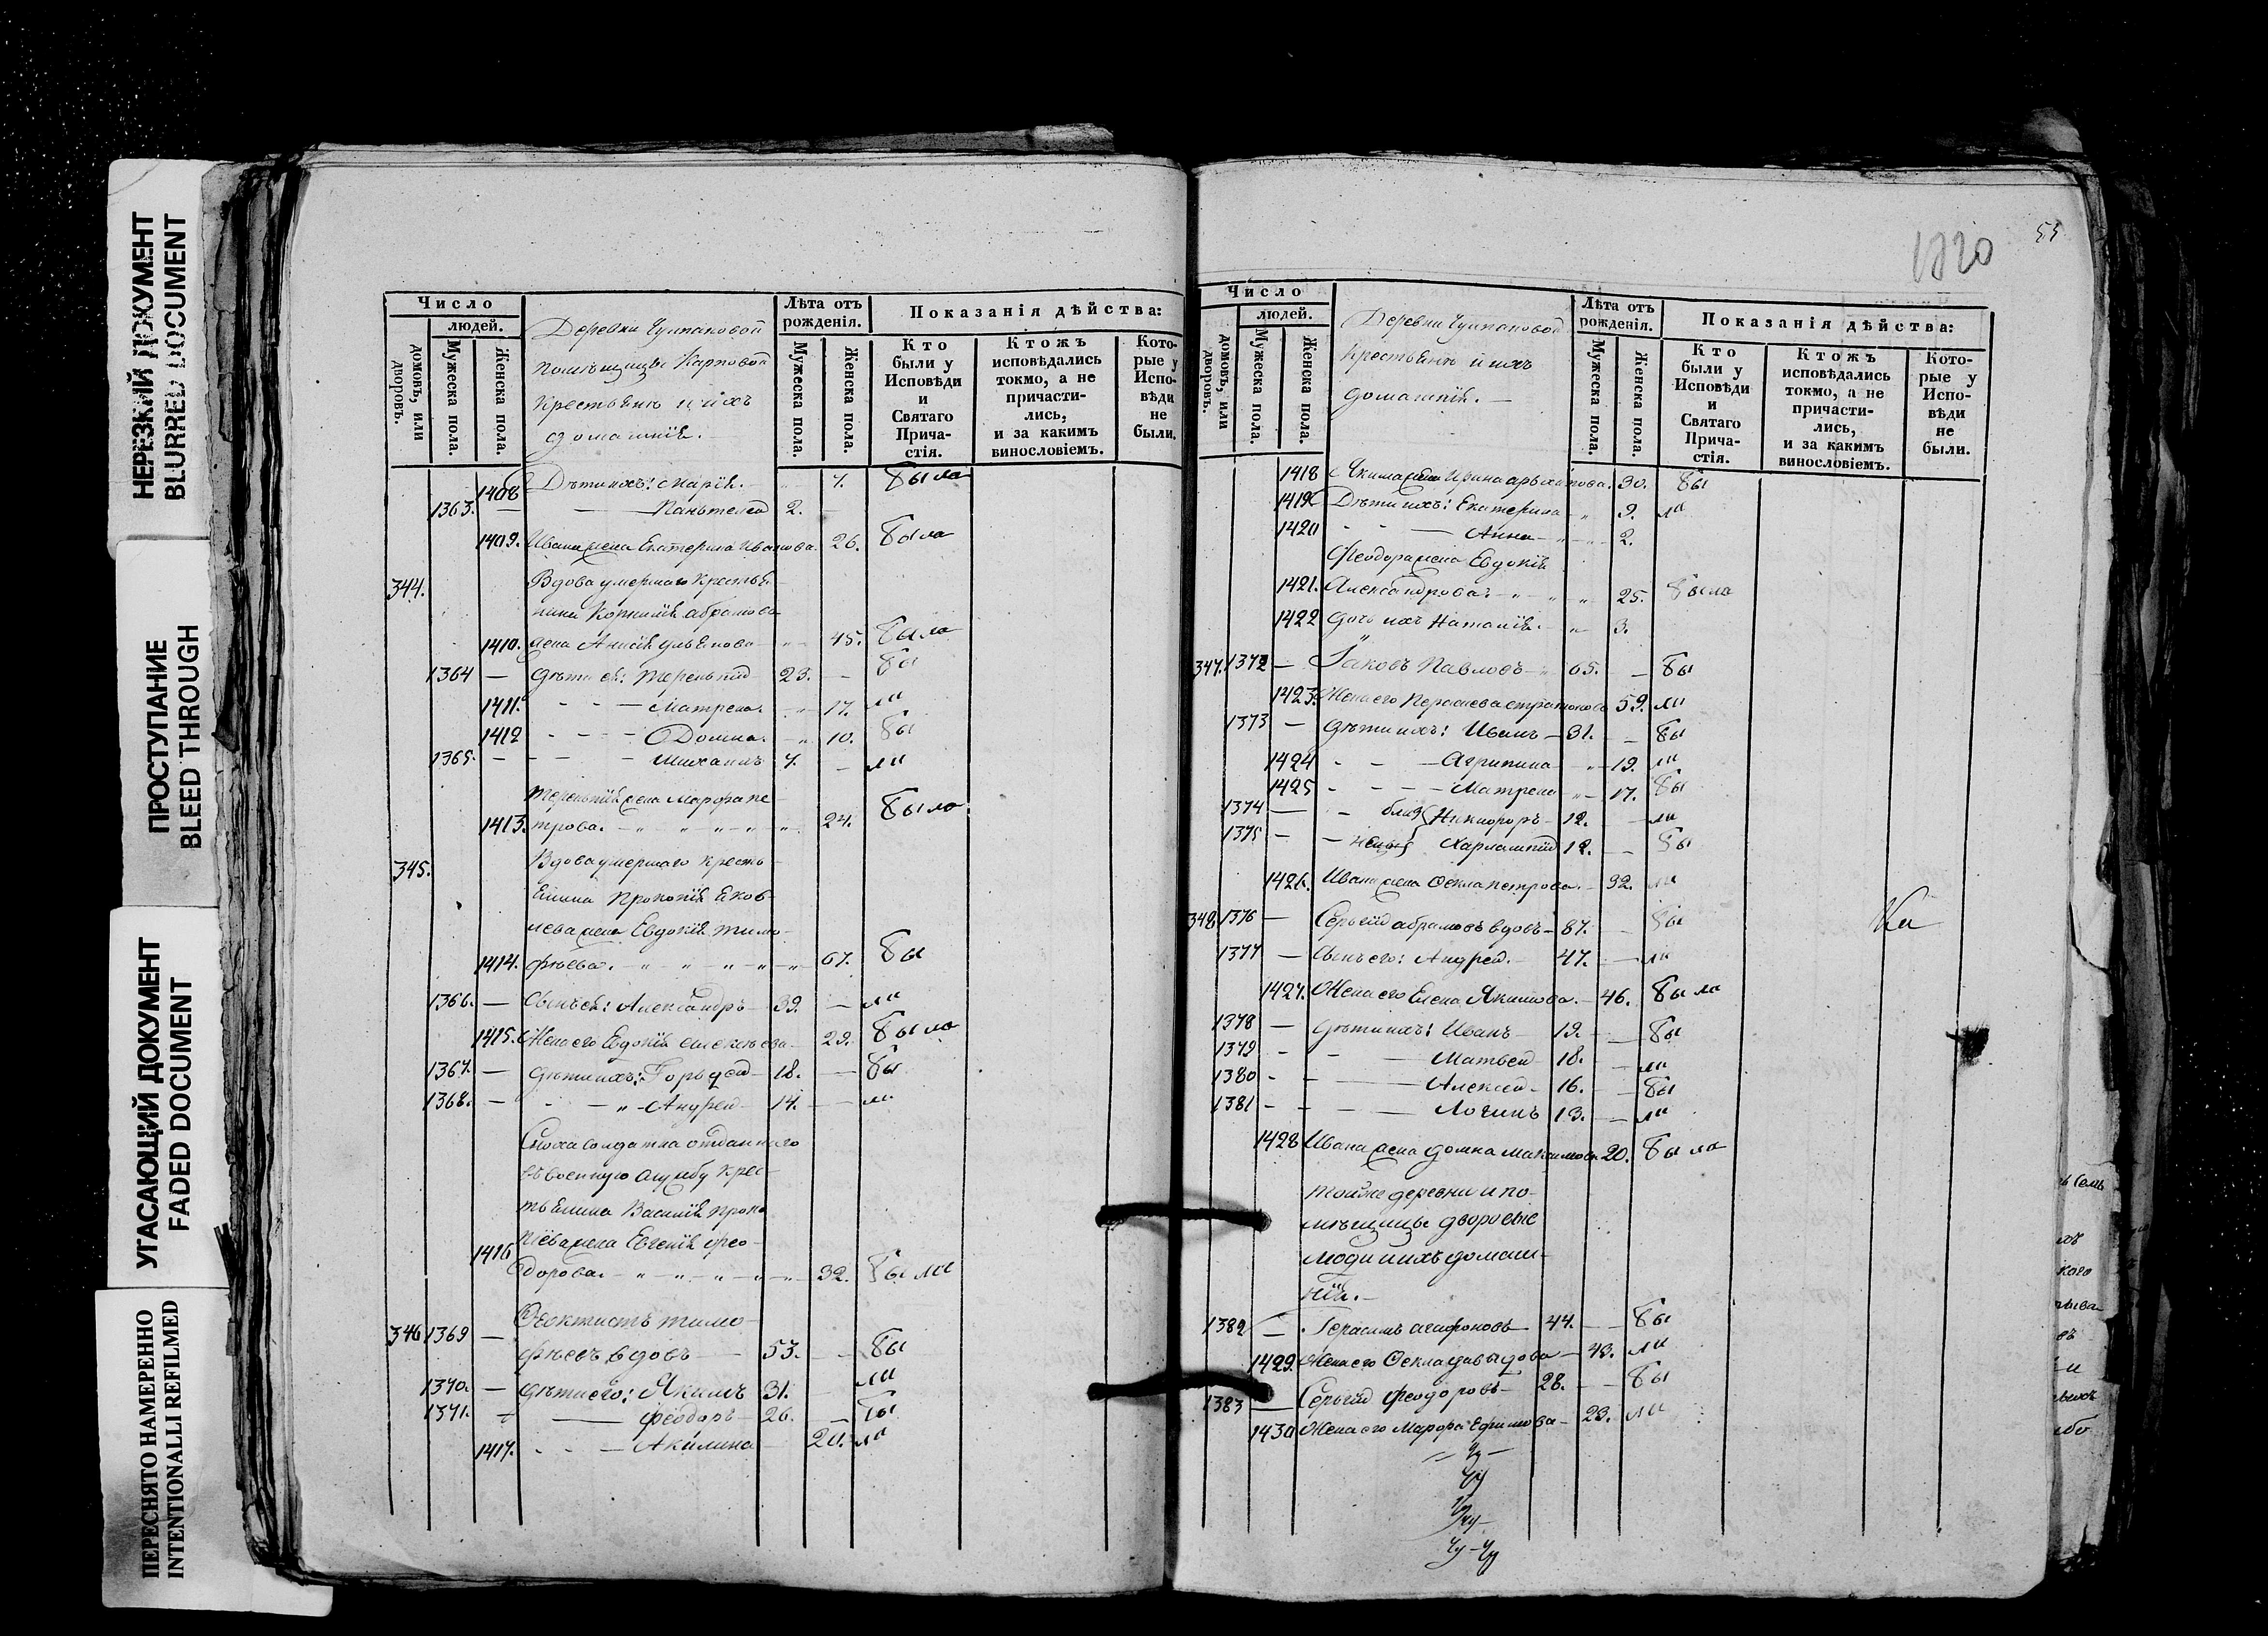 НЕРЕЗКИЙ ДОКУМЕНТ
BLURRED DOCUMENT
ПРОСТУПАНИЕ
BLEED THROUGH
УГАСАЮЩИЙ ДОКУМЕНТ
FADED DOCUMENT
ПЕРЕСНЯТО НАМЕРЕННО
INTENTIONALLI REFILMED
Число
людей.
домовъ, или дворовъ.
Мужеска пола.
Женска пола.
Деревни Чулпановой
помѣщицы Карповой
крестьянѣ и ихъ
домашнія.
Лѣта отъ рожденія.
Мужеска пола.
Женска пола.
Показанія дѣйства:
Кто были у Исповѣди и Святаго Прича-стія.
Ктожъ исповѣдались токмо, а не причасти-лись, и за какимъ винословіемъ.
Кото-рые у Испо-вѣди не были.
1408 Дѣти ихъ: Марія. 7. была
1363. — Пантелей 2.
1409. Ивана жена Екатерина Иванова. 26. была
344. Вдова умершаго крестья-
нина Корнилія Абрамова
1410. жена Анисія Ульянова 45. была
1364 — дѣти ея: Терентій 23. бы
1411. Матрена. 17. ли
1412 Домна. 10. бы
1365. Михаилъ 7. ли
Терентія жена Марфа Пе-
1413. трова. 24. была
345. Вдова умершаго кресть-
янина Прокопія Яков-
лева жена Евдокія Тимо-
1414. фѣева. 67. бы
1366. — Сынъ ея: Александръ 39. ли
1415. Жена его Евдокія Алексѣева 29. была
1367. — дѣти ихъ: Гордей 18. бы
1368. — Андрей 14. ли
Сноха солдатка отданнаго
въ военную службу крес-
тьянина Василія Проко
1416 піева жена Евгенія Фео-
дорова. 32. была
346 1369 — Феоктистъ Тимо-
фѣевъ вдовъ 53. бы
1370. — дѣти его: Якимъ 31. ли
1371. Феодоръ 26. бы
1417. Акилина 20. ли
1820
55
Число
людей.
домовъ, или дворовъ.
Мужеска пола.
Женска пола.
Деревни Чулпановой
крестьянѣ и ихъ
домашнія.
Лѣта отъ рожденія.
Мужеска пола.
Женска пола.
Показанія дѣйства:
Кто были у Исповѣди и Святаго Прича-стія.
Ктожъ исповѣдались токмо, а не причасти-лись, и за какимъ винословіемъ.
Кото-рые у Испо-вѣди не были.
1418 Якима жена Ирина Архипова. 30. бы
1419 Дѣти ихъ: Екатерина 9. ли
1420 Анна 2.
Феодора жена Евдокія
1421. Александрова. 25. была
1422 дочь ихъ Наталія. 3.
347. 1372 — Іаковъ Павловъ 65. бы
1423. Жена его Парасева Стратонова 59. ли
1373 — дѣти ихъ: Иванъ 31. бы
1424 Агрипина 19. ли
1425 Матрена 17. бы
1374 — близ Никифоръ 12. ли
1375 — нецы Харлампій 12. бы
1426. Ивана жена Фекла Петрова. 32. ли
348 1376 — Сергій Абрамовъ вдовъ 87. бы
1377 — Сынъ его: Андрей. 47. ли
1427. Жена его Елена Якимова. 46. была
1378 — дѣти ихъ: Иванъ 19. бы
1379 Матвей 18. ли
1380 Алексей 16. бы
1381 Логинъ 13. ли
1428 Ивана жена Домна Максимова 20. была
той же деревни и по-
мѣщицы дворовые
люди и ихъ домаш-
нія.
1382 — Герасимъ Агафоновъ 44. бы
1429. Жена его Фекла Давыдова 43. ли
1383 — Сергій Феодоровъ 28. бы
1430 Жена его Марфа Ефимова 23. ли